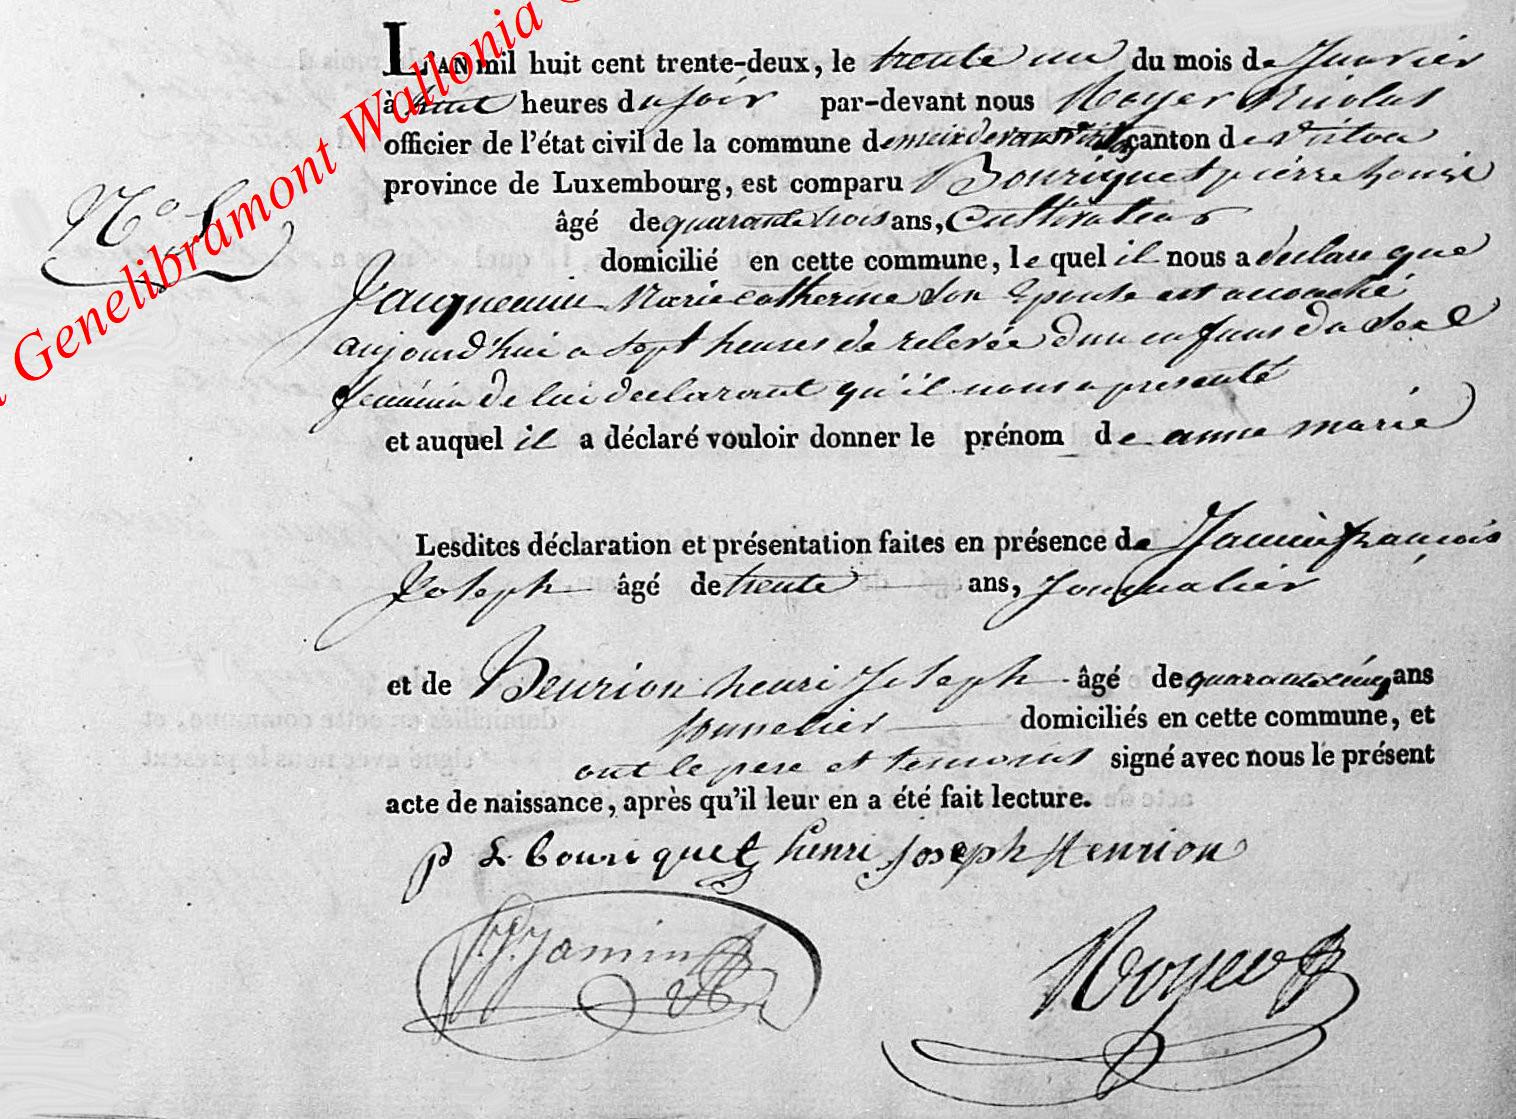 L'AN mil huit cent trente-deux, le trente un du mois de Janvier
à huit heures du soir par-devant nous Royer Nicolas
officier de l'état civil de la commune de meix devant Virton canton de Virton
province de Luxembourg, est comparu Bouriquet pierre Louis
N°
âgé de quarante trois ans, Cultivateur
domicilié en cette commune, le quel il nous a déclaré que
Jacquemin Marie Catherine Son Epouse est accouché
aujourd'hui a sept heures de relevée d'un enfant du Sexe
feminin de lui declarant qu'il nous a presenté
et auquel il a déclaré vouloir donner le prénom de anne marie
Lesdites déclaration et présentation faites en présence de Jamin françois
Joseph âgé de trente ans, Journalier
et de Henrion henri Joseph âgé de quarante cinq ans
domiciliés en cette commune, et
ont le pere et temoins signé avec nous le présent
acte de naissance, après qu'il leur en a été fait lecture.
p L bouriquet henri joseph Henrion
Jamin
Royer
Genelibramont Wallonia